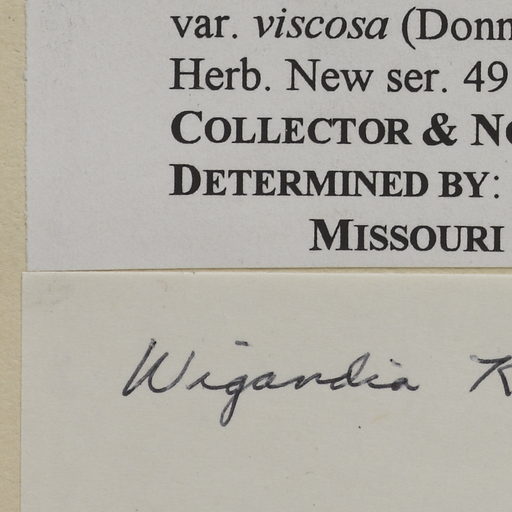 var. viscosa (Donn
Herb. New ser. 49
COLLECTOR & No
DETERMINED BY:
MISSOURI
Wigandia